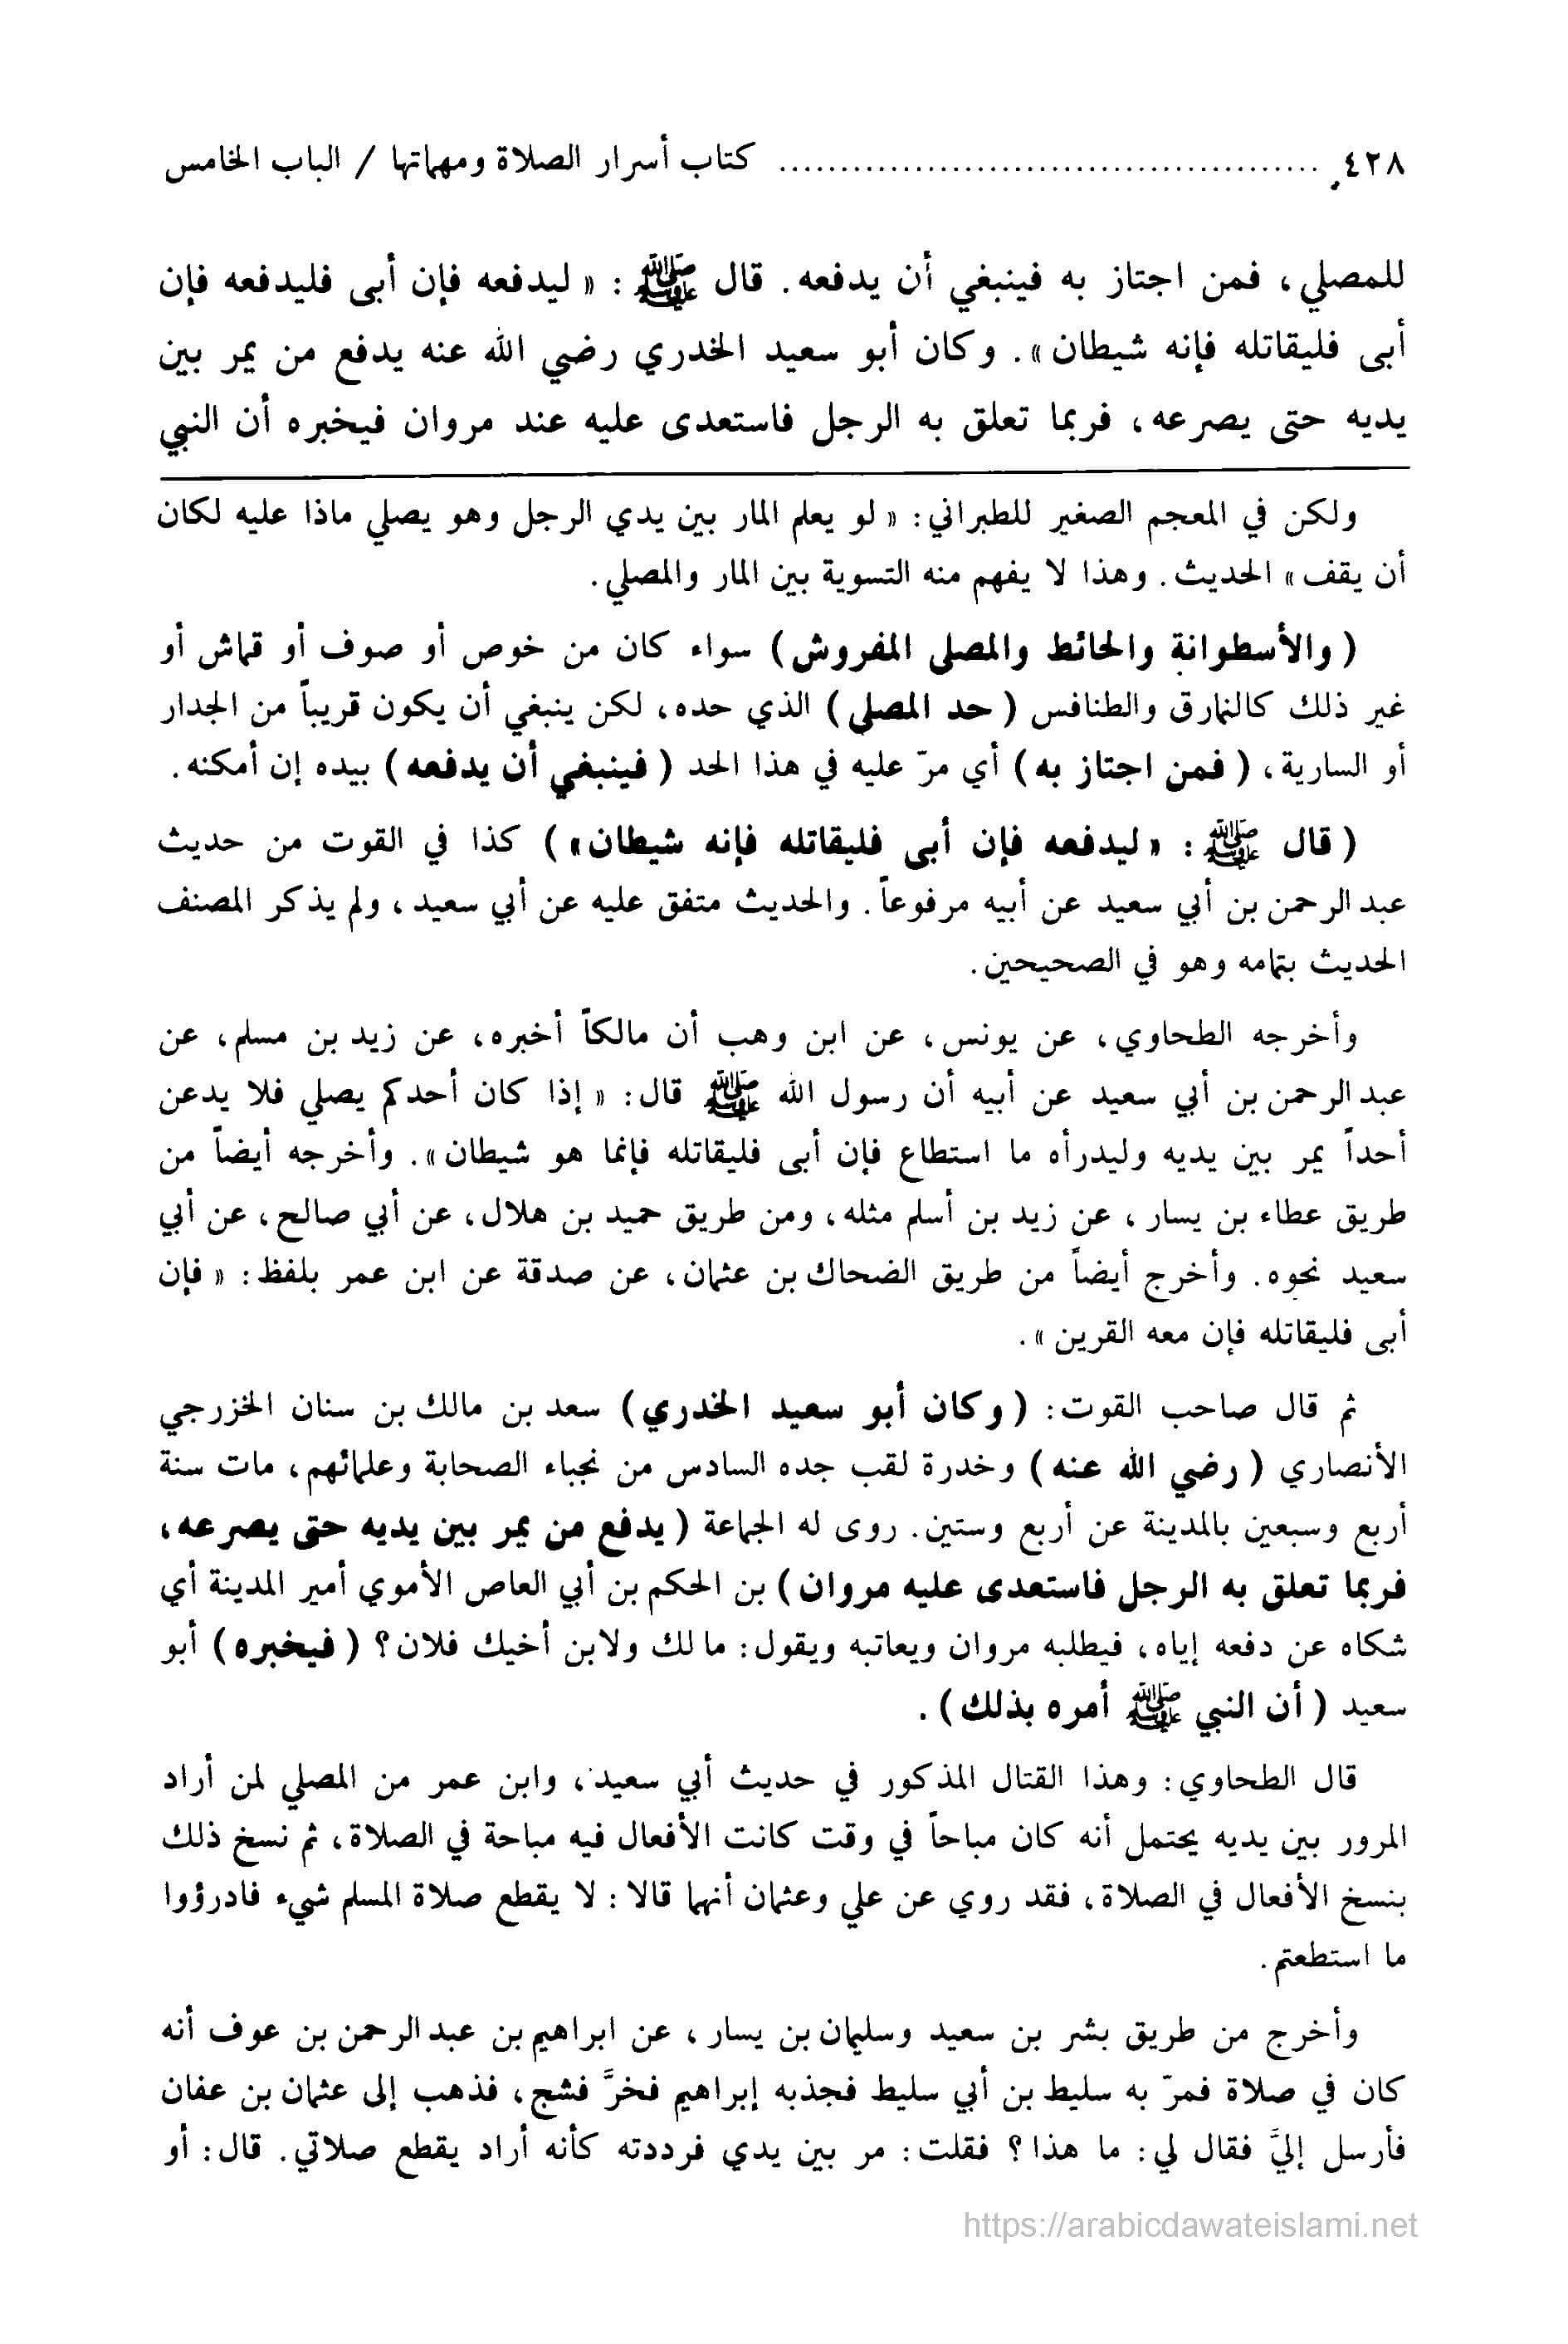 ٤٢٨ ........................................... كتاب أسرار الصلاة ومهماتها / الباب الخامس
للمصلي، فمن اجتاز به فينبغي أن يدفعه. قال ﷺ : « ليدفعه فإن أبى فليدفعه فإن
أبى فليقاتله فإنه شيطان ». وكان أبو سعيد الخدري رضي الله عنه يدفع من يمر بين
يديه حتى يصرعه، فربما تعلق به الرجل فاستعدى عليه عند مروان فيخبره أن النبي
ولكن في المعجم الصغير للطبراني: « لو يعلم المار بين يدي الرجل وهو يصلي ماذا عليه لكان
أن يقف » الحديث. وهذا لا يفهم منه التسوية بين المار والمصلي.
( والأسطوانة والحائط والمصلى المفروش ) سواء كان من خوص أو صوف أو قماش أو
غير ذلك كالنمارق والطنافس ( حد المصلي ) الذي حده، لكن ينبغي أن يكون قريباً من الجدار
أو السارية، ( فمن اجتاز به ) أي مرّ عليه في هذا الحد ( فينبغي أن يدفعه ) بيده إن أمكنه.
( قال ﷺ : « ليدفعه فإن أبى فليقاتله فإنه شيطان » ) كذا في القوت من حديث
عبد الرحمن بن أبي سعيد عن أبيه مرفوعاً. والحديث متفق عليه عن أبي سعيد، ولم يذكر المصنف
الحديث بتمامه وهو في الصحيحين.
وأخرجه الطحاوي، عن يونس، عن ابن وهب أن مالكاً أخبره، عن زيد بن مسلم، عن
عبد الرحمن بن أبي سعيد عن أبيه أن رسول الله ﷺ قال: « إذا كان أحدكم يصلي فلا يدعن
أحداً يمر بين يديه وليدرأه ما استطاع فإن أبى فليقاتله فإنما هو شيطان ». وأخرجه أيضاً من
طريق عطاء بن يسار، عن زيد بن أسلم مثله، ومن طريق حميد بن هلال، عن أبي صالح، عن أبي
سعيد نحوه. وأخرج أيضاً من طريق الضحاك بن عثمان، عن صدقة عن ابن عمر بلفظ: « فإن
أبى فليقاتله فإن معه القرين ».
ثم قال صاحب القوت: ( وكان أبو سعيد الخدري ) سعد بن مالك بن سنان الخزرجي
الأنصاري ( رضي الله عنه ) وخدرة لقب جده السادس من نجباء الصحابة وعلمائهم، مات سنة
أربع وسبعين بالمدينة عن أربع وستين. روى له الجماعة ( يدفع من يمر بين يديه حتى يصرعه،
فربما تعلق به الرجل فاستعدى عليه مروان ) بن الحكم بن أبي العاص الأموي أمير المدينة أي
شكاه عن دفعه إياه، فيطلبه مروان ويعاتبه ويقول: ما لك ولابن أخيك فلان؟ ( فيخبره ) أبو
سعيد ( أن النبي ﷺ أمره بذلك ) .
قال الطحاوي: وهذا القتال المذكور في حديث أبي سعيد، وابن عمر من المصلي لمن أراد
المرور بين يديه يحتمل أنه كان مباحاً في وقت كانت الأفعال فيه مباحة في الصلاة، ثم نسخ ذلك
بنسخ الأفعال في الصلاة، فقد روي عن علي وعثمان أنهما قالا: لا يقطع صلاة المسلم شيء فادرؤوا
ما استطعتم.
وأخرج من طريق بشر بن سعيد وسليمان بن يسار، عن ابراهيم بن عبد الرحمن بن عوف أنه
كان في صلاة فمرّ به سليط بن أبي سليط فجذبه إبراهيم فخرَّ فشج، فذهب إلى عثمان بن عفان
فأرسل إليَّ فقال لي: ما هذا؟ فقلت: مر بين يدي فرددته كأنه أراد يقطع صلاتي. قال: أو
https://arabicdawateislami.net